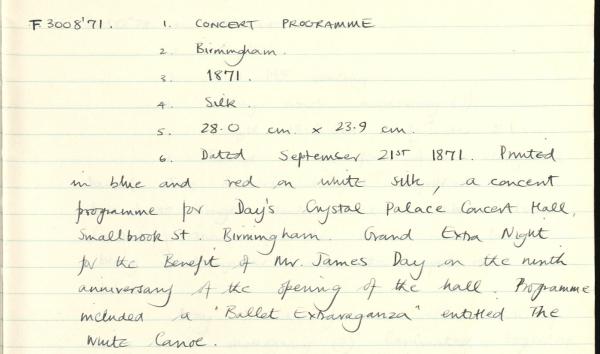 F 3008'71. 1. CONCERT PROGRAMME
2. Birmingham.
3. 1871.
4. Silk.
5. 28.0 cm. x 23.9 cm.
6. Dated September 21ST 1871. Printed
in blue and red on white silk, a concert
programme for Day's Crystal Palace Concert Hall,
Smallbrook St. Birmingham. Grand Extra Night
for the Benefit of Mr. James Day on the ninth
anniversary of the opening of the hall. Programme
included a "Ballet Extravaganza" entitled The
White Canoe.